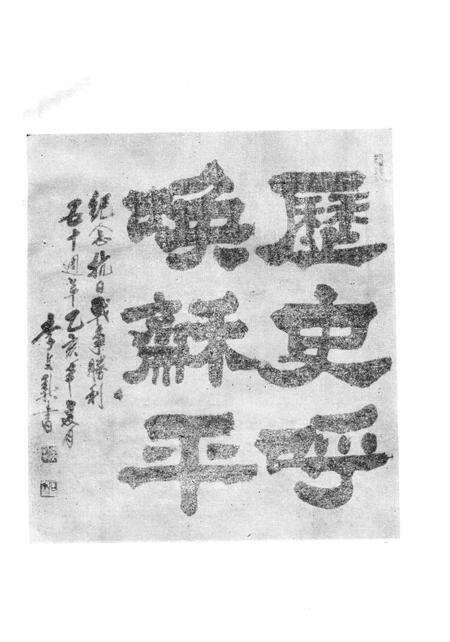 歷史呼
喚蘇平
紀念抗日戰爭勝利
五十週年乙亥年
李